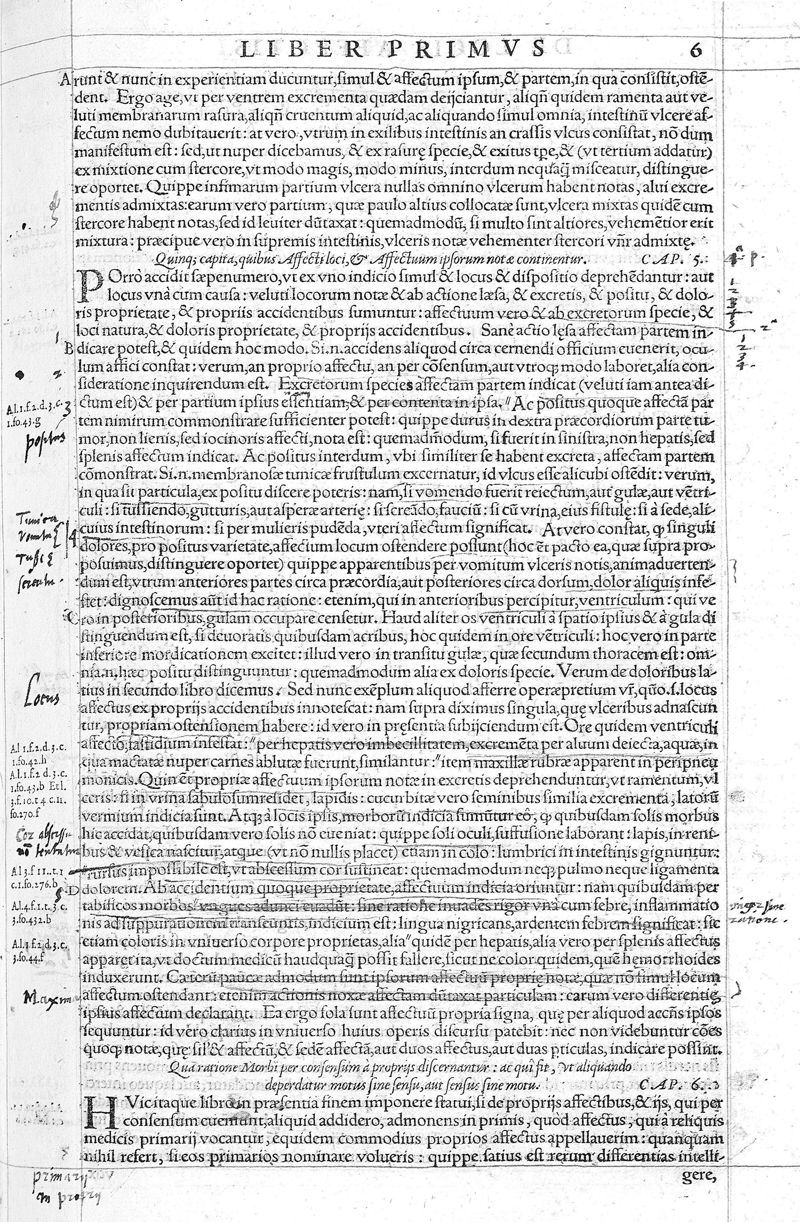 LIBER PRIMVS 6
A runt & nunc in experientiam ducuntur, simul & affectum ipsum, & partem, in qua consistit, ostē-
dent. Ergo age, vt per ventrem excrementa quædam deijciantur, aliqñ quidem ramenta aut ve-
luti membranarum rasura, aliqñ cruentum aliquid, ac aliquando simul omnia, intestinū vlcere af-
fectum nemo dubitauerit: at vero, vtrum in exilibus intestinis an crassis vlcus consistat, nō dum
manifestum est: sed, ut nuper dicebamus, & ex rasurę specie, & exitus tp̄e, & (vt tertium addatur)
ex mixtione cum stercore, vt modo magis, modo minus, interdum nequaq̄ misceatur, distingue-
re oportet. Quippe infimarum partium vlcera nullas omnino vlcerum habent notas, alui excre-
mentis admixtas: earum vero partium, quæ paulo altius collocatæ sunt, vlcera mixtas quidē cum
stercore habent notas, sed id leuiter dūtaxat: quemadmodū, si multo sint altiores, vehemētior erit
mixtura: præcipue vero in supremis intestinis, vlceris notæ vehementer stercori vñr admixtę.
Quinq; capita, quibus Affecti loci, & Affectuum ipsorum notæ continentur. CAP. 5.
POrrò accidit sæpenumero, vt ex vno indicio simul & locus & dispositio deprehēdantur: aut
locus vnà cum causa: veluti locorum notæ & ab actione læsa, & excretis, & positu, & dolo-
ris proprietate, & propriis accidentibus sumuntur: affectuum vero & ab excretorum specie, &
loci natura, & doloris proprietate, & proprijs accidentibus. Sanè actio lęsa affectam partem in-
B dicare potest, & quidem hoc modo. Si.n. accidens aliquod circa cernendi officium euenerit, ocu-
lum affici constat: verum, an proprio affectu, an per cōsensum, aut vtroq; modo laboret, alia con-
sideratione inquirendum est. Excretorum species affectam partem indicat (veluti iam antea di-
ctum est) & per partium ipsius essentiam, & per contenta in ipsa. Ac positus quoque affectā par
tem nimirum commonstrare sufficienter potest: quippe durus in dextra præcordiorum parte tu-
mor, non lienis, sed iocinoris affecti, nota est: quemadmodum, si fuerit in sinistra, non hepatis, sed
splenis affectum indicat. Ac positus interdum, vbi similiter se habent excreta, affectam partem
cōmonstrat. Si.n. membranosæ tunicæ frustulum excernatur, id vlcus esse alicubi ostēdit: verum,
in qua sit particula, ex positu discere poteris: nam, si vomendo fuerit reiectum, aut gulæ, aut vētri-
culi: si tussiendo, gutturis, aut asperæ arterię: si screādo, fauciū: si cū vrina, eius fistulę: si à sede, ali-
cuius intestinorum: si per mulieris pudēda, vteri affectum significat. At vero constat, q̄ singuli
dolores, pro positus varietate, affectum locum ostendere possunt (hoc ēt pacto ea, quæ supra pro-
posuimus, distinguere oportet) quippe apparentibus per vomitum vlceris notis, animaduerten-
dum est, vtrum anteriores partes circa præcordia, aut posteriores circa dorsum, dolor aliquis infe-
stet: dignoscemus aūt id hac ratione: etenim, qui in anterioribus percipitur, ventriculum: qui ve
C ro in posterioribus, gulam occupare censetur. Haud aliter os ventriculi à spatio ipsius & à gula di
stinguendum est, si deuoratis quibusdam acribus, hoc quidem in ore vētriculi: hoc vero in parte
inferiore mordicationem excitet: illud vero in transitu gulæ, quæ secundum thoracem est: om-
nia.n. hæc positu distinguuntur: quemadmodum alia ex doloris specie. Verum de doloribus la-
tius in secundo libro dicemus. Sed nunc exēplum aliquod afferre operæpretium vr̄, quō.s. locus
affectus ex proprijs accidentibus innotescat: nam supra diximus singula, quę vlceribus adnascun
tur, propriam ostensionem habere: id vero in pręsentia subijciendum est. Ore quidem ventriculi
affecto, fastidium infestat: per hepatis vero imbecillitatem, excremēta per aluum deiecta, aquæ, in
qua mactatæ nuper carnes ablutæ fuerunt, similantur: item maxillæ rubræ apparent in peripneu
monicis. Quin ēt propriæ affectuum ipsorum notæ in excretis deprehenduntur, vt ramentum, vl
ceris: si in vrina sabulosum residet, lapidis: cucurbitæ vero seminibus similia excrementa, latorū
vermium indicia sunt. Atq; à locis ipsis, morborū indicia sumūtur eò, q̄ quibusdam solis morbus
hic accidat, quibusdam vero solis nō eueniat: quippe soli oculi, suffusione laborant: lapis, in reni-
bus & vesica nascitur, atque (vt nō nullis placet) etiam in colo: lumbrici in intestinis gignuntur:
rursus impossibile est, vt abscessum cor sustineat: quemadmodum neq; pulmo neque ligamenta
D dolorem. Ab accidentium quoque proprietate, affectuum indicia oriuntur: nam quibusdam per
tabificos morbos vngues adunci euadūt: sine ratione inuadēs rigor vnà cum febre, inflammatio
nis ad suppurationem transeuntis, indicium est: lingua nigricans, ardentem febrem significat: sic
etiam coloris in vniuerso corpore proprietas, alia quidē per hepatis, alia vero per splenis affectus
apparet ita, vt doctum medicū haudquaq̄ possit fallere, sicut ne color quidem, quē hęmorrhoides
induxerunt. Cæterū paucæ admodum sunt ipsorum affectuū proprię notæ, quæ nō simul locum
affectum ostendant: etenim actionis noxæ affectam dūtaxat particulam: earum vero differentię,
ipsius affectum declarant. Ea ergo sola sunt affectuū propria signa, quę per aliquod accn̄s ipsos
sequuntur: id vero clarius in vniuerso huius operis discursu patebit: nec non videbuntur cōes
quoq; notæ, quę sil̄ & affectū, & sedē affectā, aut duos affectus, aut duas pticulas, indicare possint.
Quā ratione Morbi per consensum à proprijs discernantur: ac qui fit, vt aliquando
deperdatur motus sine sensu, aut sensus sine motu. CAP. 6.
HVic itaque libro in præsentia finem imponere statui, si de proprijs affectibus, & ijs, qui per
consensum eueniunt, aliquid addidero, admonens in primis, quod affectus, qui à reliquis
medicis primarij vocantur, equidem commodius proprios affectus appellauerim: quanquam
nihil refert, si eos primarios nominare volueris: quippe satius est rerum differentias intelli-
gere,
Al.1.f.2.d.3.c.
1.fo.43.g
positus
Tunica
Vomitus
Tussis
screatu.
Locus
Al.1.f.2.d.3.c.
1.fo.42.h
Al.1.f.2.d.3.c.
1.fo.43.b Et l.
3.f.10.t 4 c.11.
fo.270.f
Al.3.f.11.t.1
c.1.fo.276.b
Al.4.f.1.t.3.c.
3.fo.432.b
Al.1.f.2.d.3.c.
3.fo.44.f
Maxima
sine
ratione.
primarij
proprij